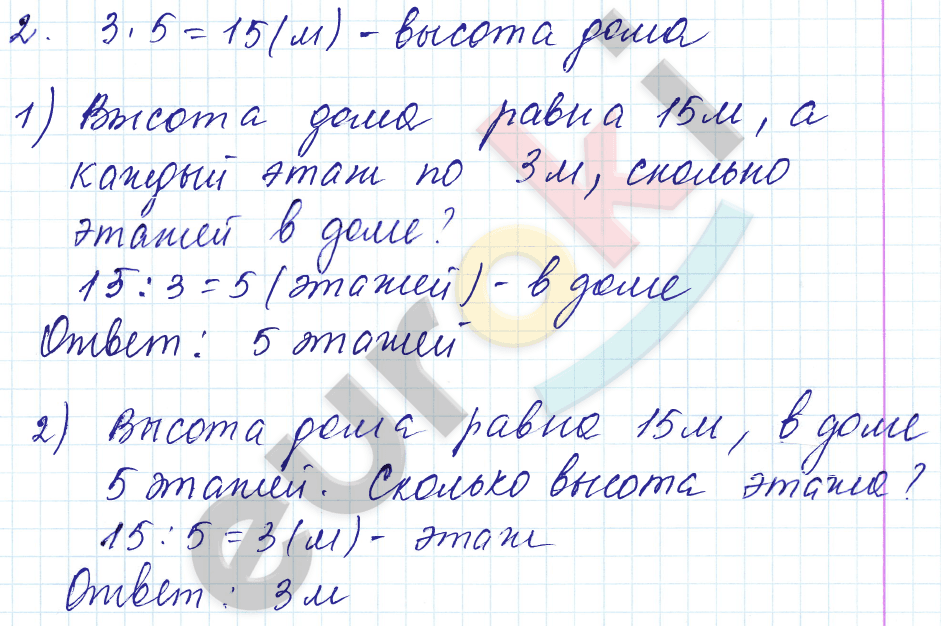 2. 3·5=15(м) - высота дома
1) Высота дома равна 15м, а
каждый этаж по 3м, сколько
этажей в доме?
15:3=5(этажей) - в доме
Ответ: 5 этажей
2) Высота дома равна 15м, в доме
5 этажей. Сколько высота этажа?
15:5=3(м) - этаж
Ответ: 3м
euroki